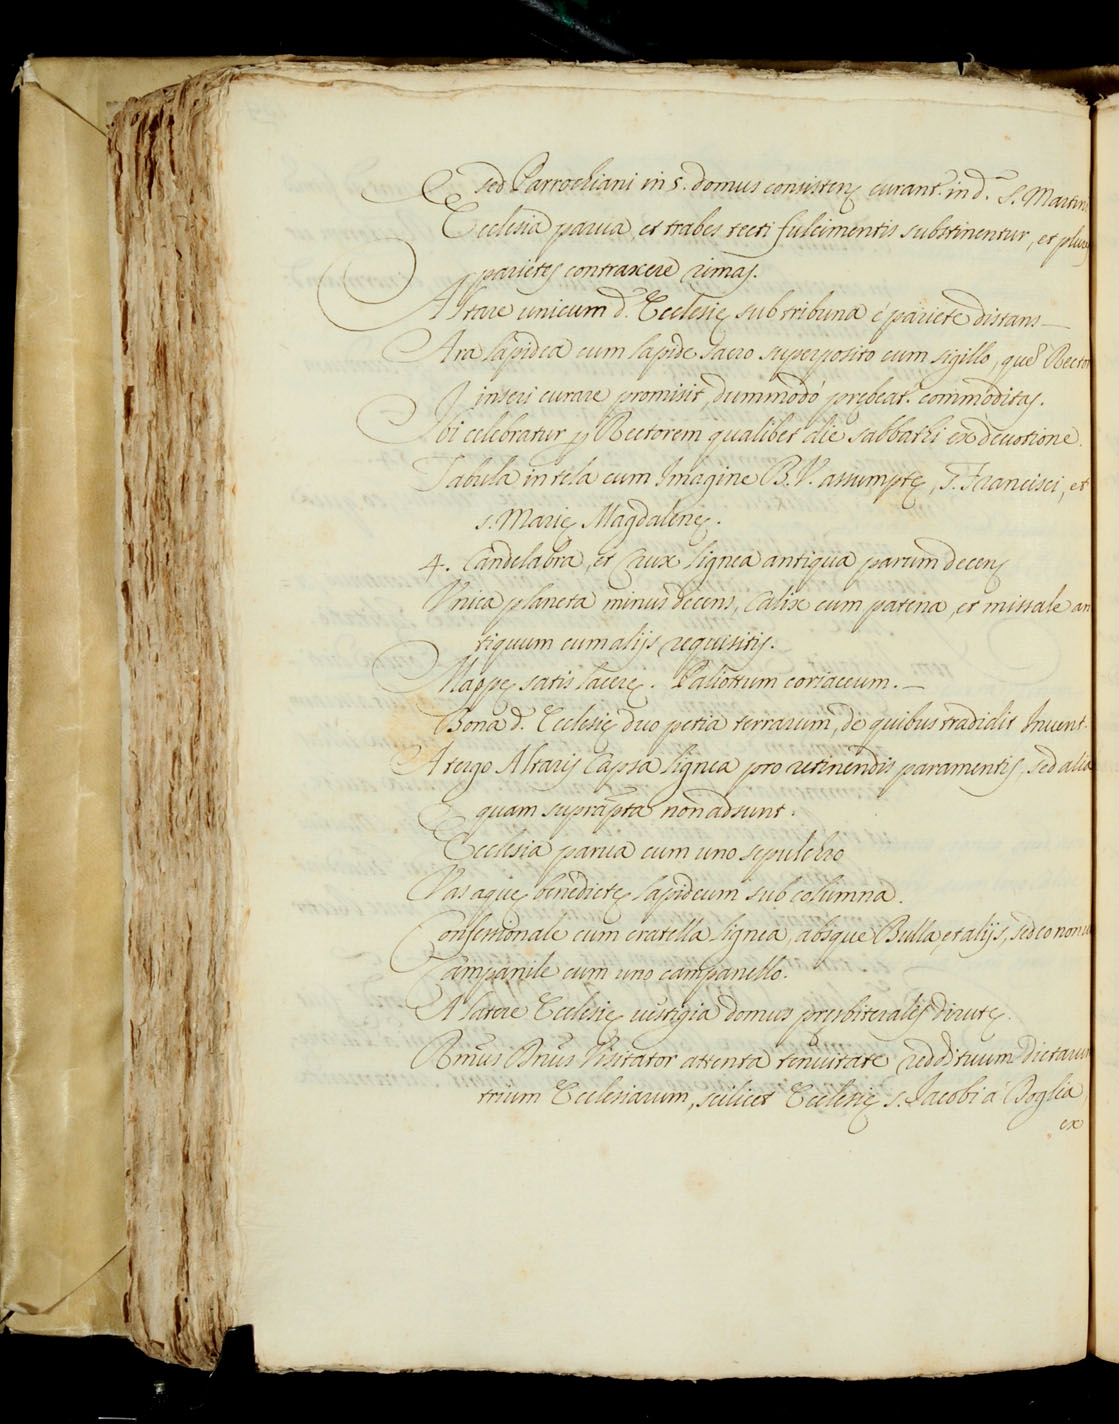 sed Parrochiani in 5. domus consisten. curant. in d. S. Martini
Ecclesia parua, et trabes tecti fulcimentis substinentur, et plures
parietes contraxere rimas.
Altare unicum d. Ecclesię sub tribuna é pariete distans —
Ara lapidea cum lapide sacro superposito cum sigillo, que Rector
inseri curare promisit, dummodó prębeat. commoditas.
Ibi celebratur p Rectorem qualibet die sabbathi ex deuotione.
Tabula in tela cum Imagine B. V. assumptę, S. Francisci, et
s. Marię Magdalenę.
4. Candelabra, et crux lignea antiqua parum decens
Vnica planeta minus decens, calix cum patena, et missale an
tiquum cum alijs requisitis.
Mappę satis lacerę. Paliottum coriaceum. —
Bona d. Ecclesię duo petia terrarum, de quibus tradidit Inuent.
A tergo Altaris capsa lignea pro retinendis paramentis, sed alia
quam suprapta non adsunt.
Ecclesia parua cum uno sepulchro
Vas aquę benedictę lapideum sub columna.
Confessionale cum cratella lignea, absque Bulla, et alijs, sed eo non
Campanile cum uno campanello.
A latere Ecclesię uestigia domus presbiteralis dirutę.
Rmus Dnus Visitator attenta tenuitate reddituum dictarum
trium Ecclesiarum, scilicet Ecclesię s. Jacobi á Boglia,
ex